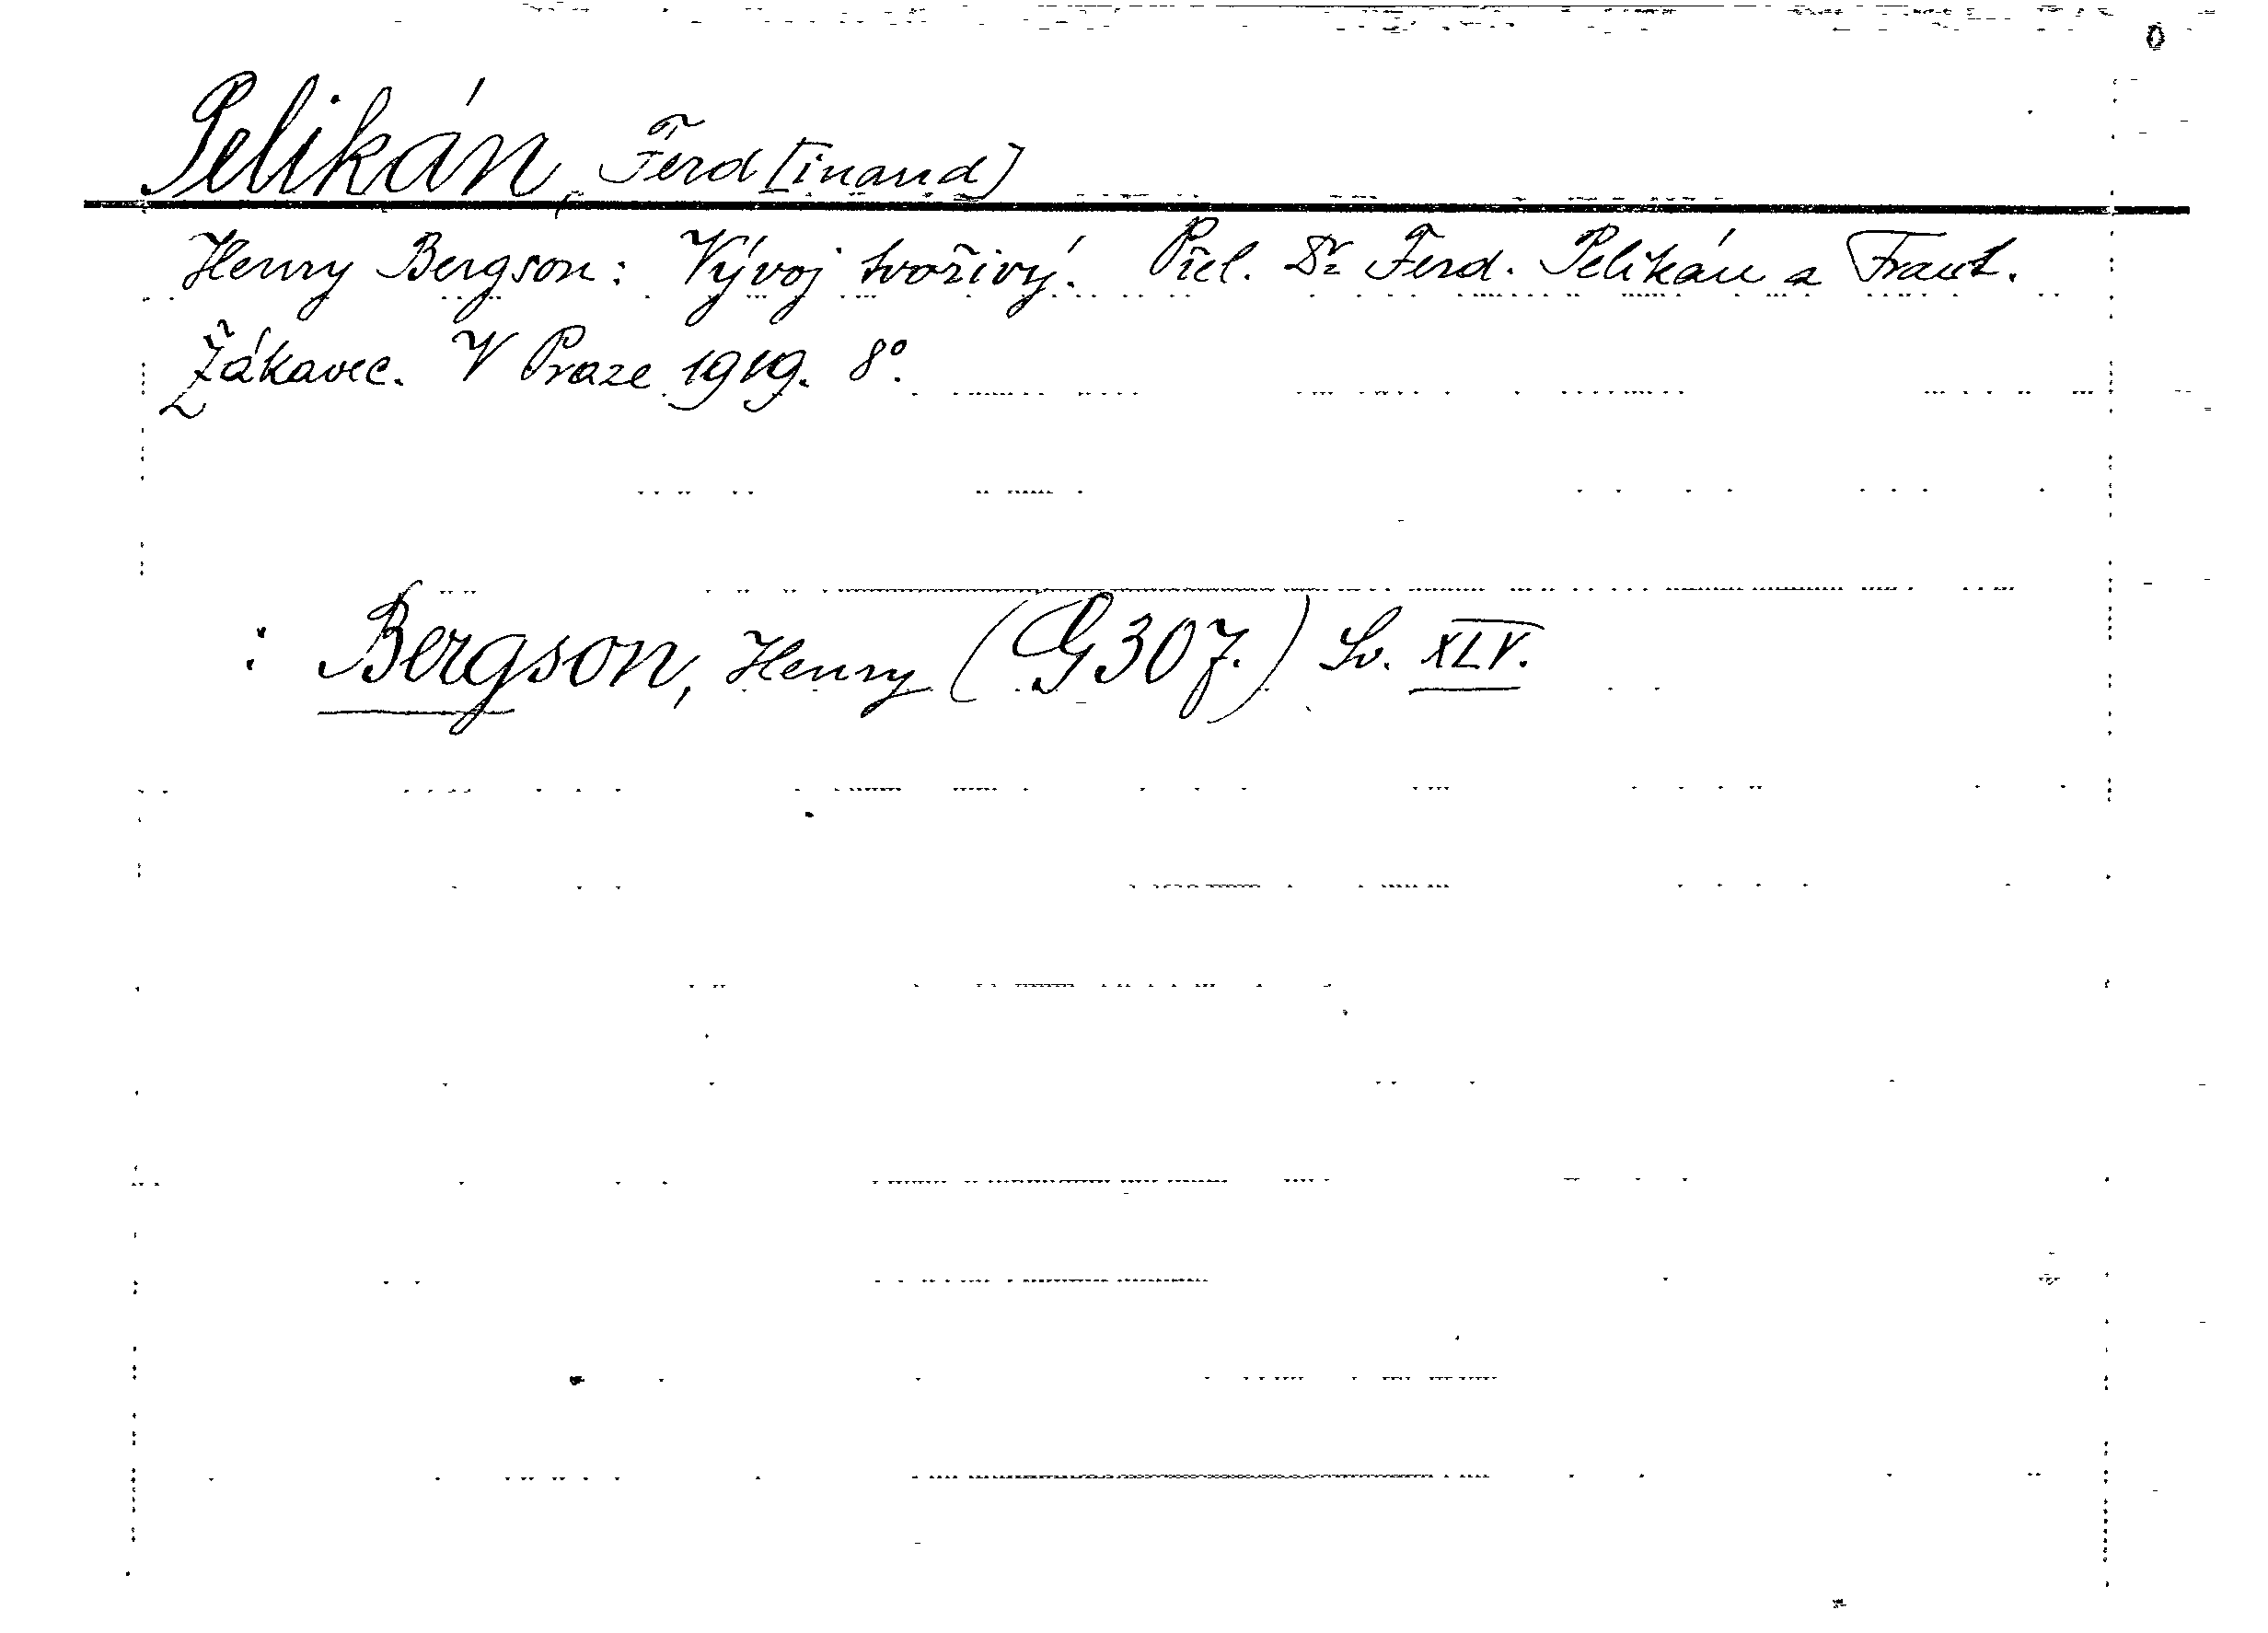 0
Pelikán, Ferd[inand]
Henry Bergson: Vývoj tvořivý. Přel. Dr Ferd. Pelikán a Frant.
Žákavec. V Praze 1919. 8°.
: Bergson, Henry (G 307.) Sv. XLV.